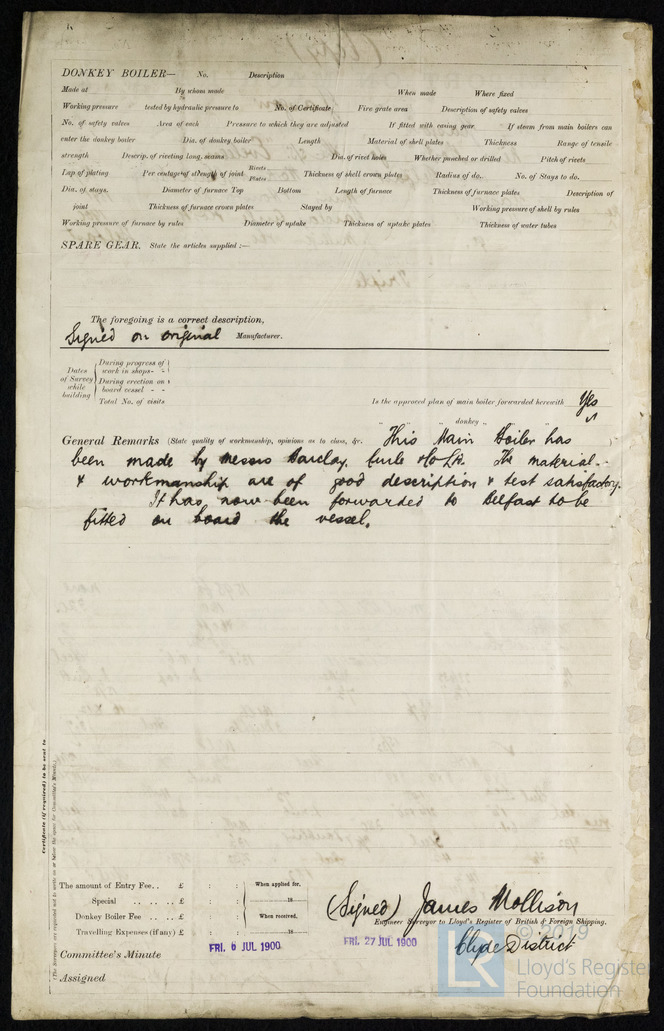 DONKEY BOILER— No. Description
Made at By whom made When made Where fixed
Working pressure tested by hydraulic pressure to No. of Certificate Fire grate area Description of safety valves
No. of safety valves Area of each Pressure to which they are adjusted If fitted with easing gear If steam from main boilers can
enter the donkey boiler Dia. of donkey boiler Length Material of shell plates Thickness Range of tensile
strength Descrip. of riveting long. seams Dia. of rivet holes Whether punched or drilled Pitch of rivets
Lap of plating Per centage of strength of joint Rivets Plates Thickness of shell crown plates Radius of do. No. of Stays to do.
Dia. of stays. Diameter of furnace Top Bottom Length of furnace Thickness of furnace plates Description of
joint Thickness of furnace crown plates Stayed by Working pressure of shell by rules
Working pressure of furnace by rules Diameter of uptake Thickness of uptake plates Thickness of water tubes
SPARE GEAR. State the articles supplied :—
The foregoing is a correct description,
Signed on original Manufacturer.
Dates of Survey while building
During progress of work in shops - -
During erection on board vessel - -
Total No. of visits
Is the approved plan of main boiler forwarded herewith Yes
" " donkey " " "
General Remarks (State quality of workmanship, opinions as to class, &c. This Main Boiler has
been made by Messrs Barclay, Curle & Co Ld. The material
& workmanship are of good description & test satisfactory.
It has now been forwarded to Belfast to be
fitted on board the vessel.
Certificate (if required) to be sent to
(The Surveyors are requested not to write on or below the space for Committee's Minute.)
The amount of Entry Fee . . £ : : When applied for,
Special . . . . . £ : : 18
Donkey Boiler Fee . . . . £ : : When received,
Travelling Expenses (if any) £ : : 18
(Signed) James Mollison
Engineer Surveyor to Lloyd's Register of British & Foreign Shipping.
Clyde District
FRI. 6 JUL 1900
FRI. 27 JUL 1900
Committee's Minute
Assigned
LR © 2019
Lloyd's Register
Foundation